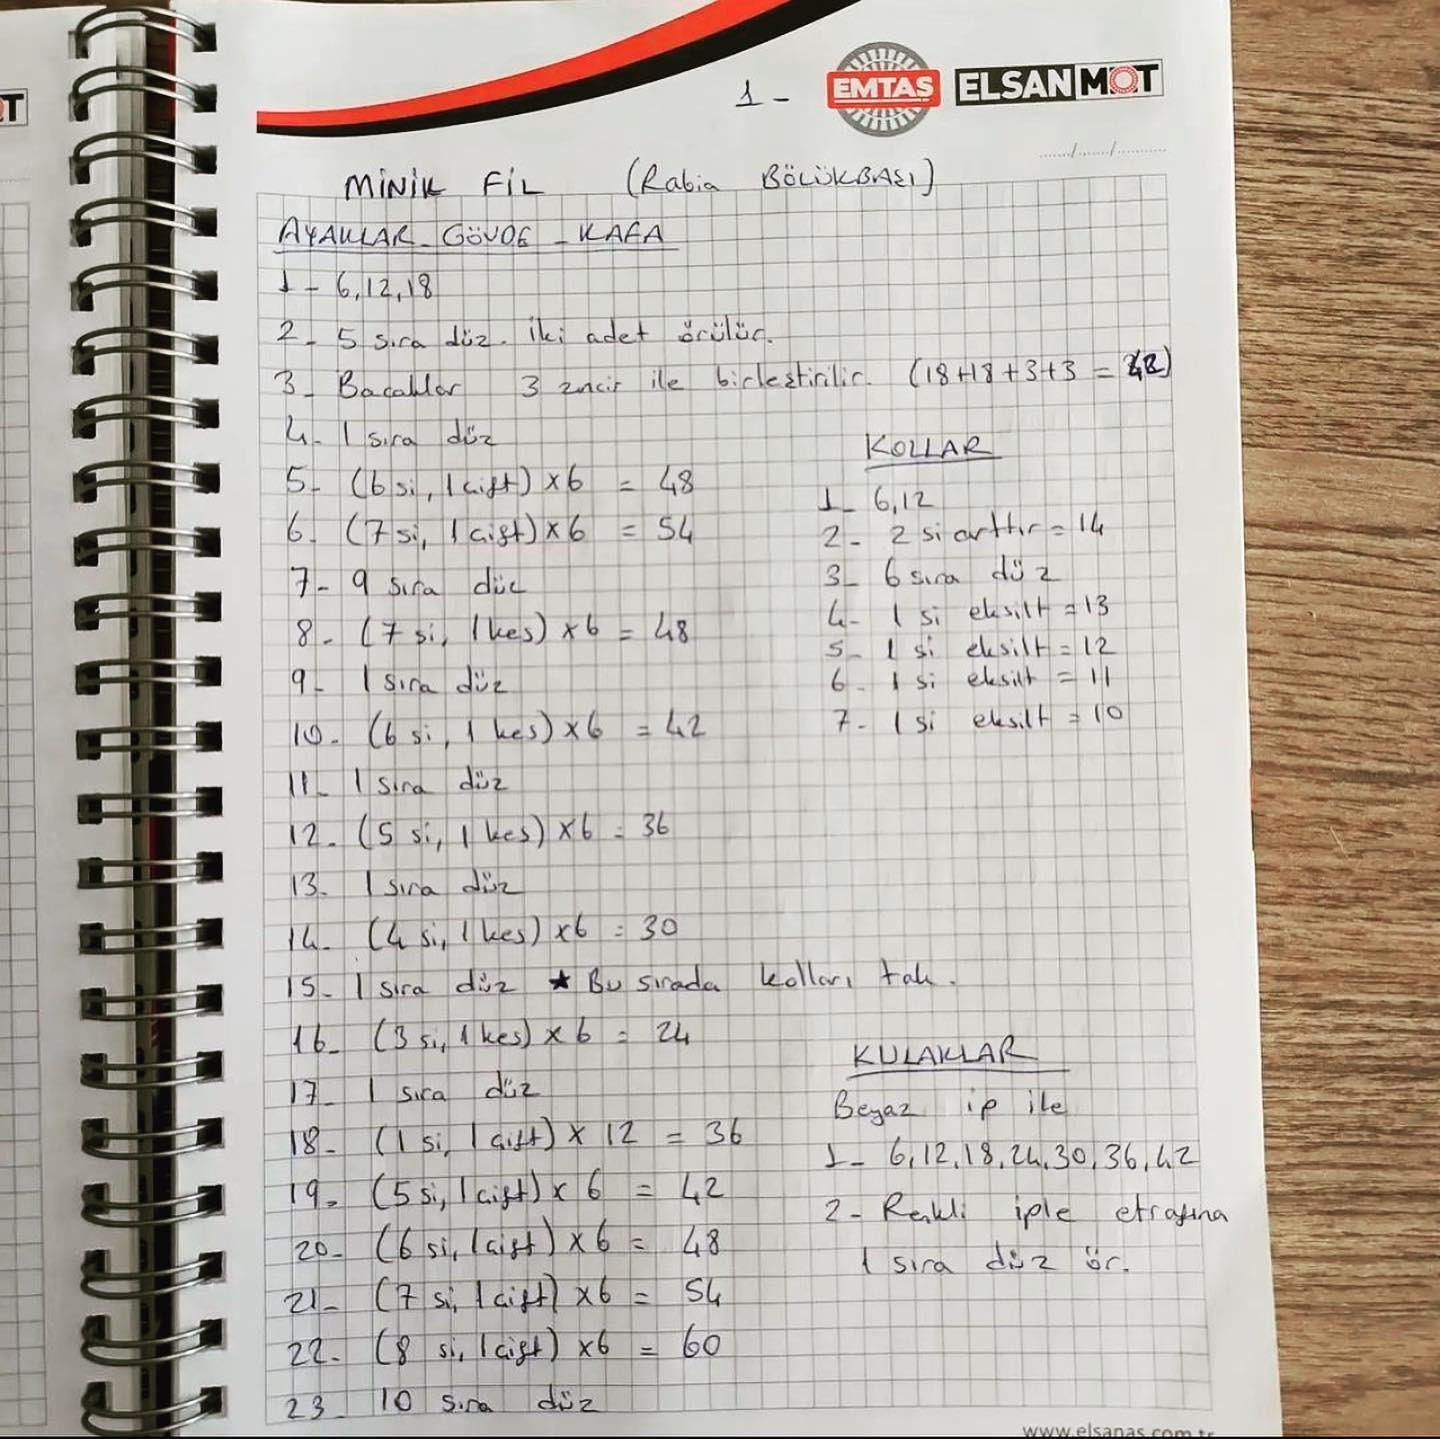 T
1-
EMTAŞ ELSAN MOT
....../....../..........
MİNİK FİL (Rabia BÖLÜKBAŞI)
AYAKLAR-GÖVDE-KAFA
1- 6,12,18
2- 5 sıra düz. İki adet örülür.
3- Bacaklar 3 zncir ile birleştirilir. (18+18+3+3 = 42)
4- 1 sıra düz
5- (6 si, 1 çift) x 6 = 48
6- (7 si, 1 çift) x 6 = 54
7- 9 sıra düz
8- (7 si, 1 kes) x 6 = 48
9- 1 sıra düz
10- (6 si, 1 kes) x 6 = 42
11- 1 sıra düz
12- (5 si, 1 kes) x 6 = 36
13- 1 sıra düz
14- (4 si, 1 kes) x 6 = 30
15- 1 sıra düz ★ Bu sırada kolları tak.
16- (3 si, 1 kes) x 6 = 24
17- 1 sıra düz
18- (1 si, 1 çift) x 12 = 36
19- (5 si, 1 çift) x 6 = 42
20- (6 si, 1 çift) x 6 = 48
21- (7 si, 1 çift) x 6 = 54
22- (8 si, 1 çift) x 6 = 60
23- 10 sıra düz
KOLLAR
1- 6,12
2- 2 si arttır = 14
3- 6 sıra düz
4- 1 si eksilt = 13
5- 1 si eksilt = 12
6- 1 si eksilt = 11
7- 1 si eksilt = 10
KULAKLAR
Beyaz ip ile
1- 6,12,18,24,30,36,42
2- Renkli iple etrafına
1 sıra düz ör.
www.elsanas.com.tr